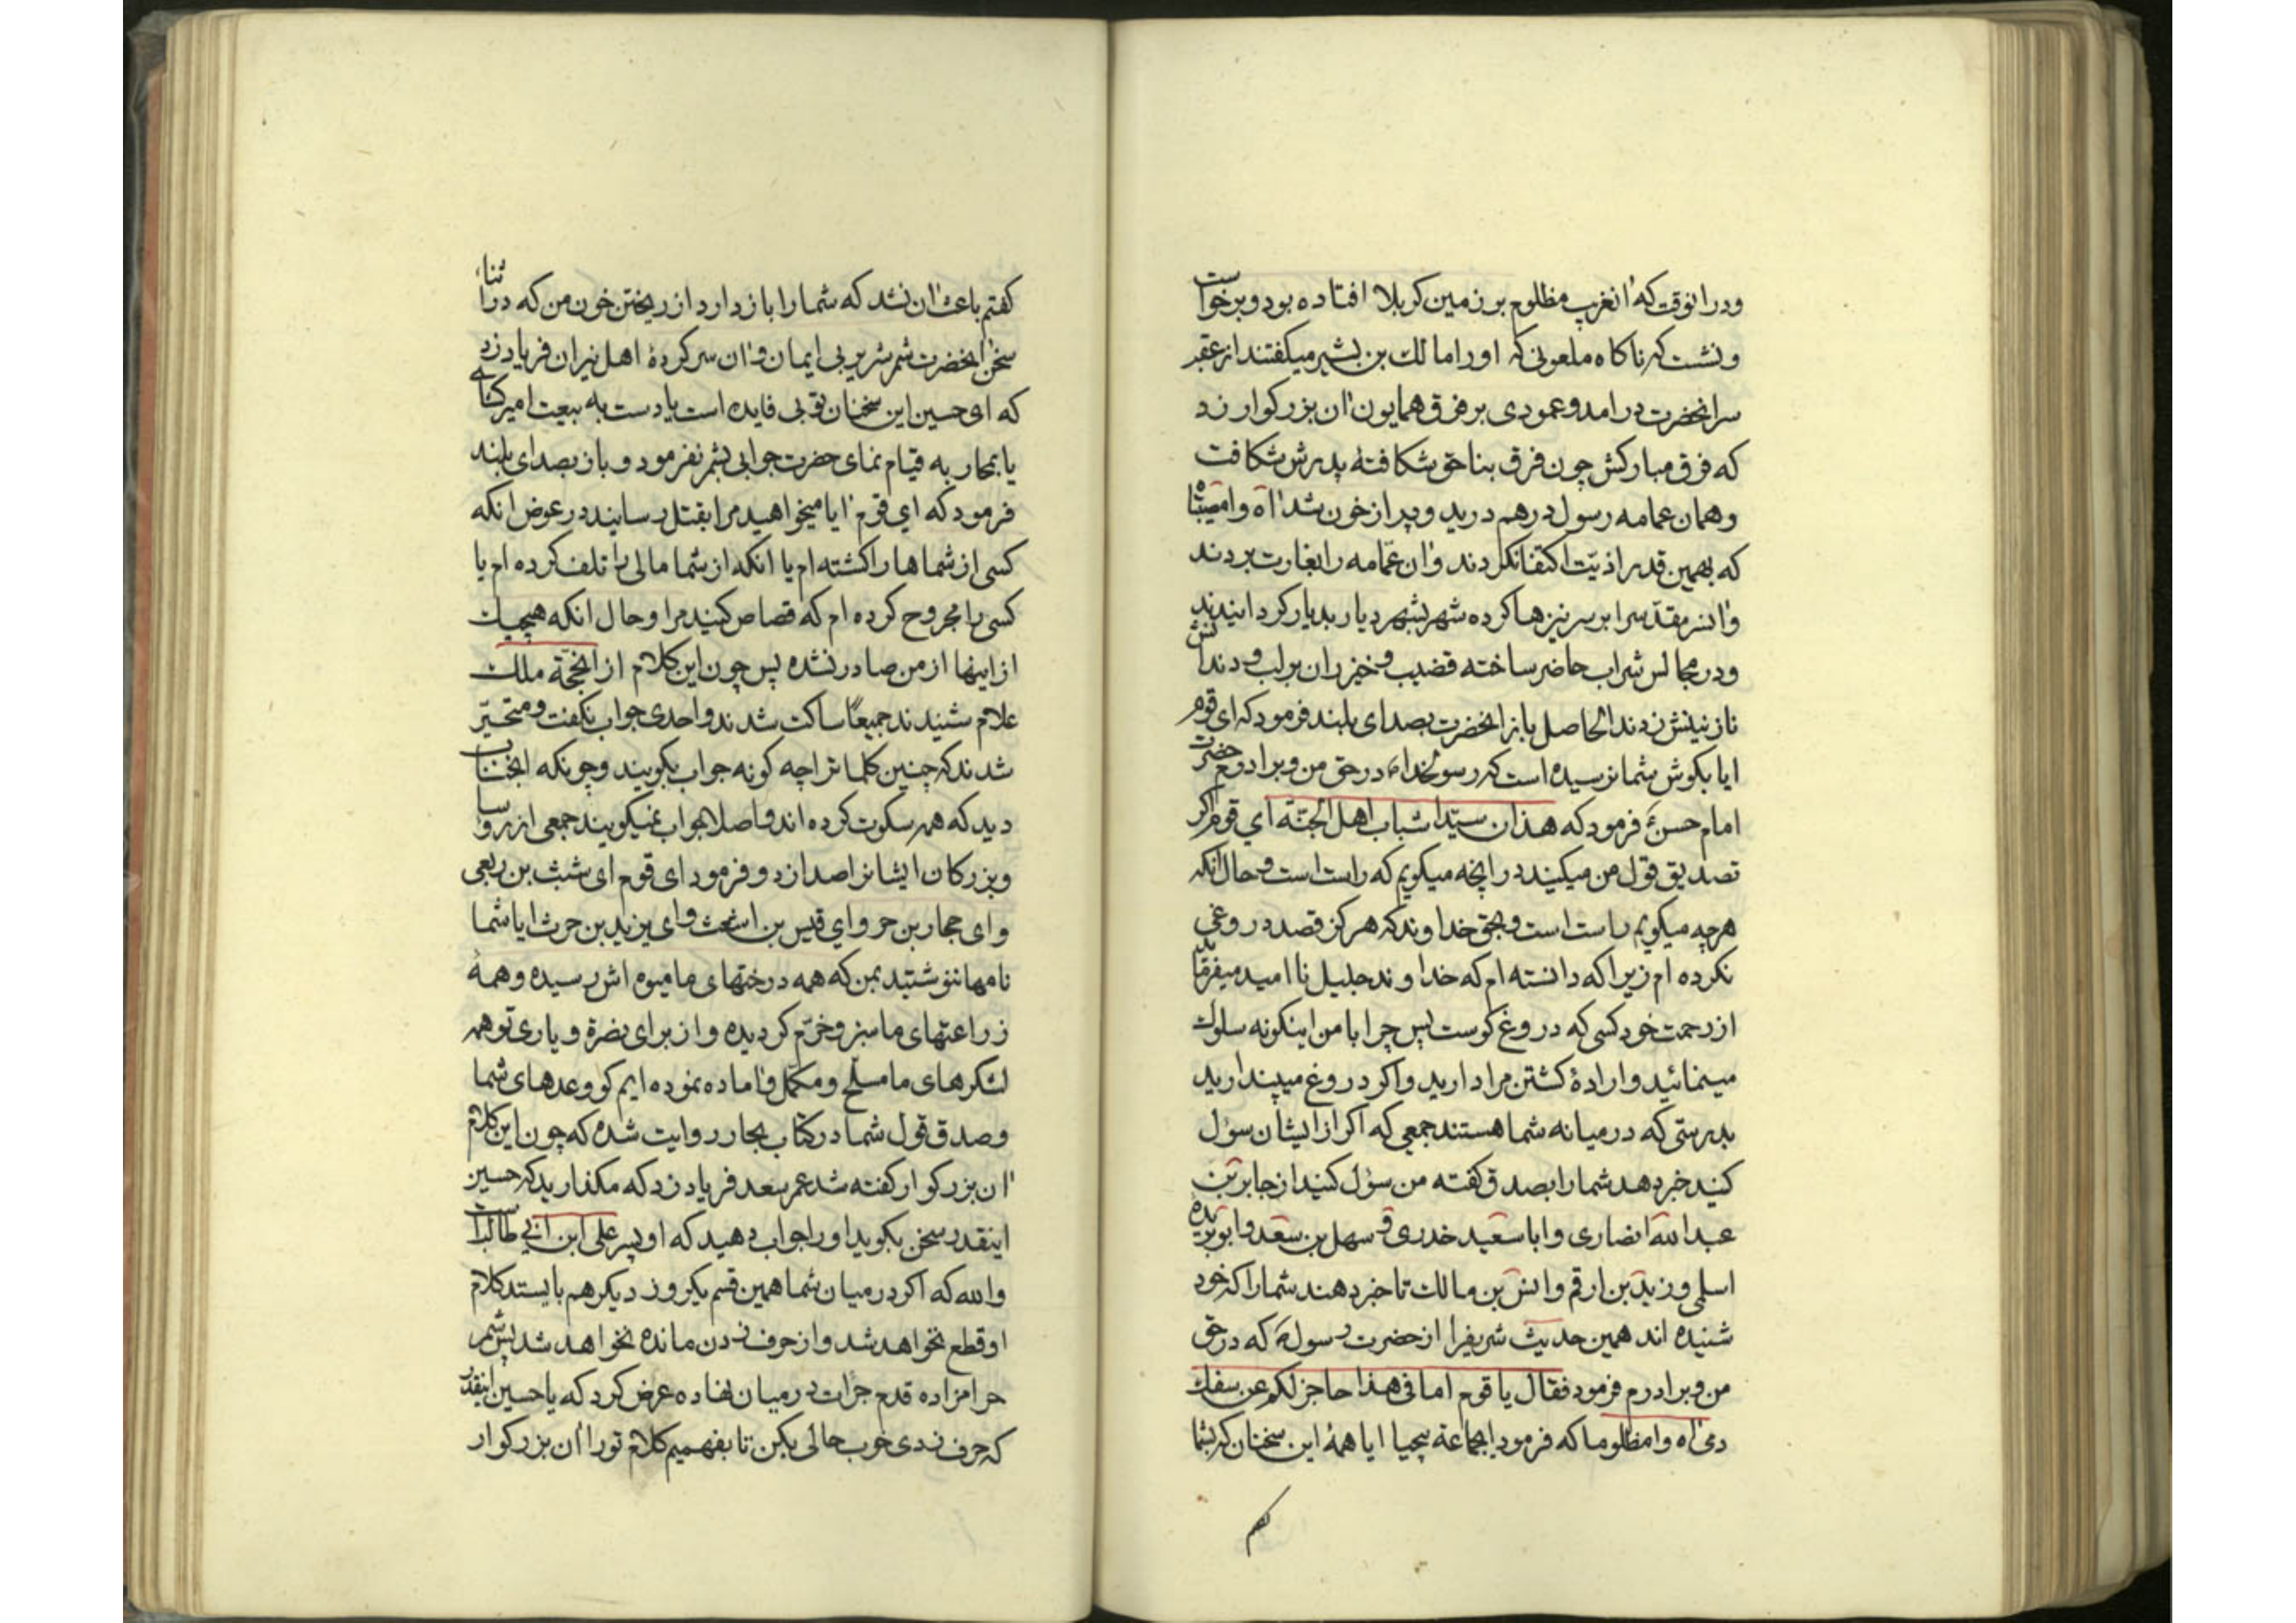 ودرانوقت که انغریب مظلوم بر زمین کربلا افتاده بود و برخواست
ونشت که ناکاه ملعونی که اورا مالک بن بشیر میکفتند از عقب
سرانحضرت درامد و عمودی بر فرق همایون ان بزرکوار زد
که فرق مبارکش چون فرق بناحق شکافتهٔ پدرش شکافت
وهمان عمامه رسول درهم درید و پر از خون شد اه وامصیبتاه
که بهمین قدر اذیّت اکتفا نکردند وان عمّامه را بغارت بردند
وانسر مقدّسرا بر سر نیزها کرده شهر بشهر دیار بدیار کردانیدند
ودر مجالس شراب حاضر ساخته قضیب و خیزران بر لب و دندانش
نازنینش زدند الحاصل باز انحضرت بصدای بلند فرمود که ای قوم
ایا بکوش شما نرسیده است که رسولخدا در حق من و برادرم حضرت
امام حسنؑ فرمود که هذان سیّدا شباب اهل الجنّة ای قوم اکر
تصدیق قول من میکنید در انچه میکویم که راست است و حال انکه
هرچه میکویم راست است و بحق خداوند که هرکز قصد دروغی
نکرده ام زیرا که دانسته ام که خداوند جلیل نا امید میفرماید
از رحمت خود کسی که دروغ کوست پس چرا با من اینکونه سلوک
مینمائید وارادهٔ کشتن مرا دارید و اکر دروغ میپندارید
بدرستی که در میانه شما هستند جمعی که اکر از ایشان سؤل
کنید خبر دهد شمارا بصدق کفته من سؤل کنید از جابر بن
عبدالله انصاری و ابا سعید خدری و سهل بن سعد و ابوبریده
اسلمی و زید بن ارقم و انس بن مالک تا خبر دهند شمارا که خود
شنیده اند همین حدیث شریفرا از حضرت رسول که در حق
من و برادرم فرمود فقال یا قوم اما فی هذا حاجز لکم عن سفک
دمی اه وامظلوما که فرمود ایجماعة بیحیا ایا همهٔ این سخنان که بشما
کفتم
کفتم باعث ان نشد که شمارا باز دارد از ریختن خون من که در اثناء
سخن انحضرت شمر شریر بی ایمان و ان سرکردهٔ اهل نیران فریاد زد
که ای حسین این سخنان تو بی فایده است یا دست به بیعت امیر کشای
یا بمحاربه قیام نمای حضرت جوابی بشمر نفرمود و باز بصدای بلند
فرمود که ای قوم ایا میخواهید مرا بقتل رسانید در عوض انکه
کسی از شماها را کشته ام یا انکه از شما مالی را تلف کرده ام یا
کسی را مجروح کرده ام که قصاص کنید مرا و حال انکه هیچیک
از اینها از من صادر نشده پس چون این کلام از انحجّة ملک
علام شنیدند جمیعًا ساکت شدند و احدی جواب نکفت و متحیّر
شدند که چنین کلماترا چه کونه جواب بکویند و چونکه انجناب
دید که همه سکوت کرده اند و اصلا جواب نمیکویند جمعی از رؤسا
و بزرکان ایشانرا صدا زد و فرمود ای قوم ای شبث بن ربعی
و ای حجار بن حر و ای قیس بن اشعث و ای یزید بن حرث ایا شما
نامها ننوشتید بمن که همه درختهای ما میوه اش رسیده و همهٔ
زراعتهای ما سبز و خرّم کردیده و از برای نصرة و یاری تو همه
لشکرهای ما مسلّح و مکمّل و اماده نموده ایم کو وعدهای شما
وصدق قول شما در کتاب بحار روایت شده که چون این کلام
ان بزرکوار کفته شد عمر سعد فریاد زد که مکذارید که حسین
اینقدر سخن بکوید اورا جواب دهید که او پسر علی ابن ابی طالبست
والله که اکر در میان شما همین قسم یکروز دیکر هم بایستد کلام
او قطع نخواهد شد و از حرف زدن مانده نخواهد شد پس شمر
حرامزاده قدم جرات در میان نهاده عرض کرد که یا حسین اینقدر
که حرف زدی خوب حالی بکن تا بفهمیم کلام تورا ان بزرکوار